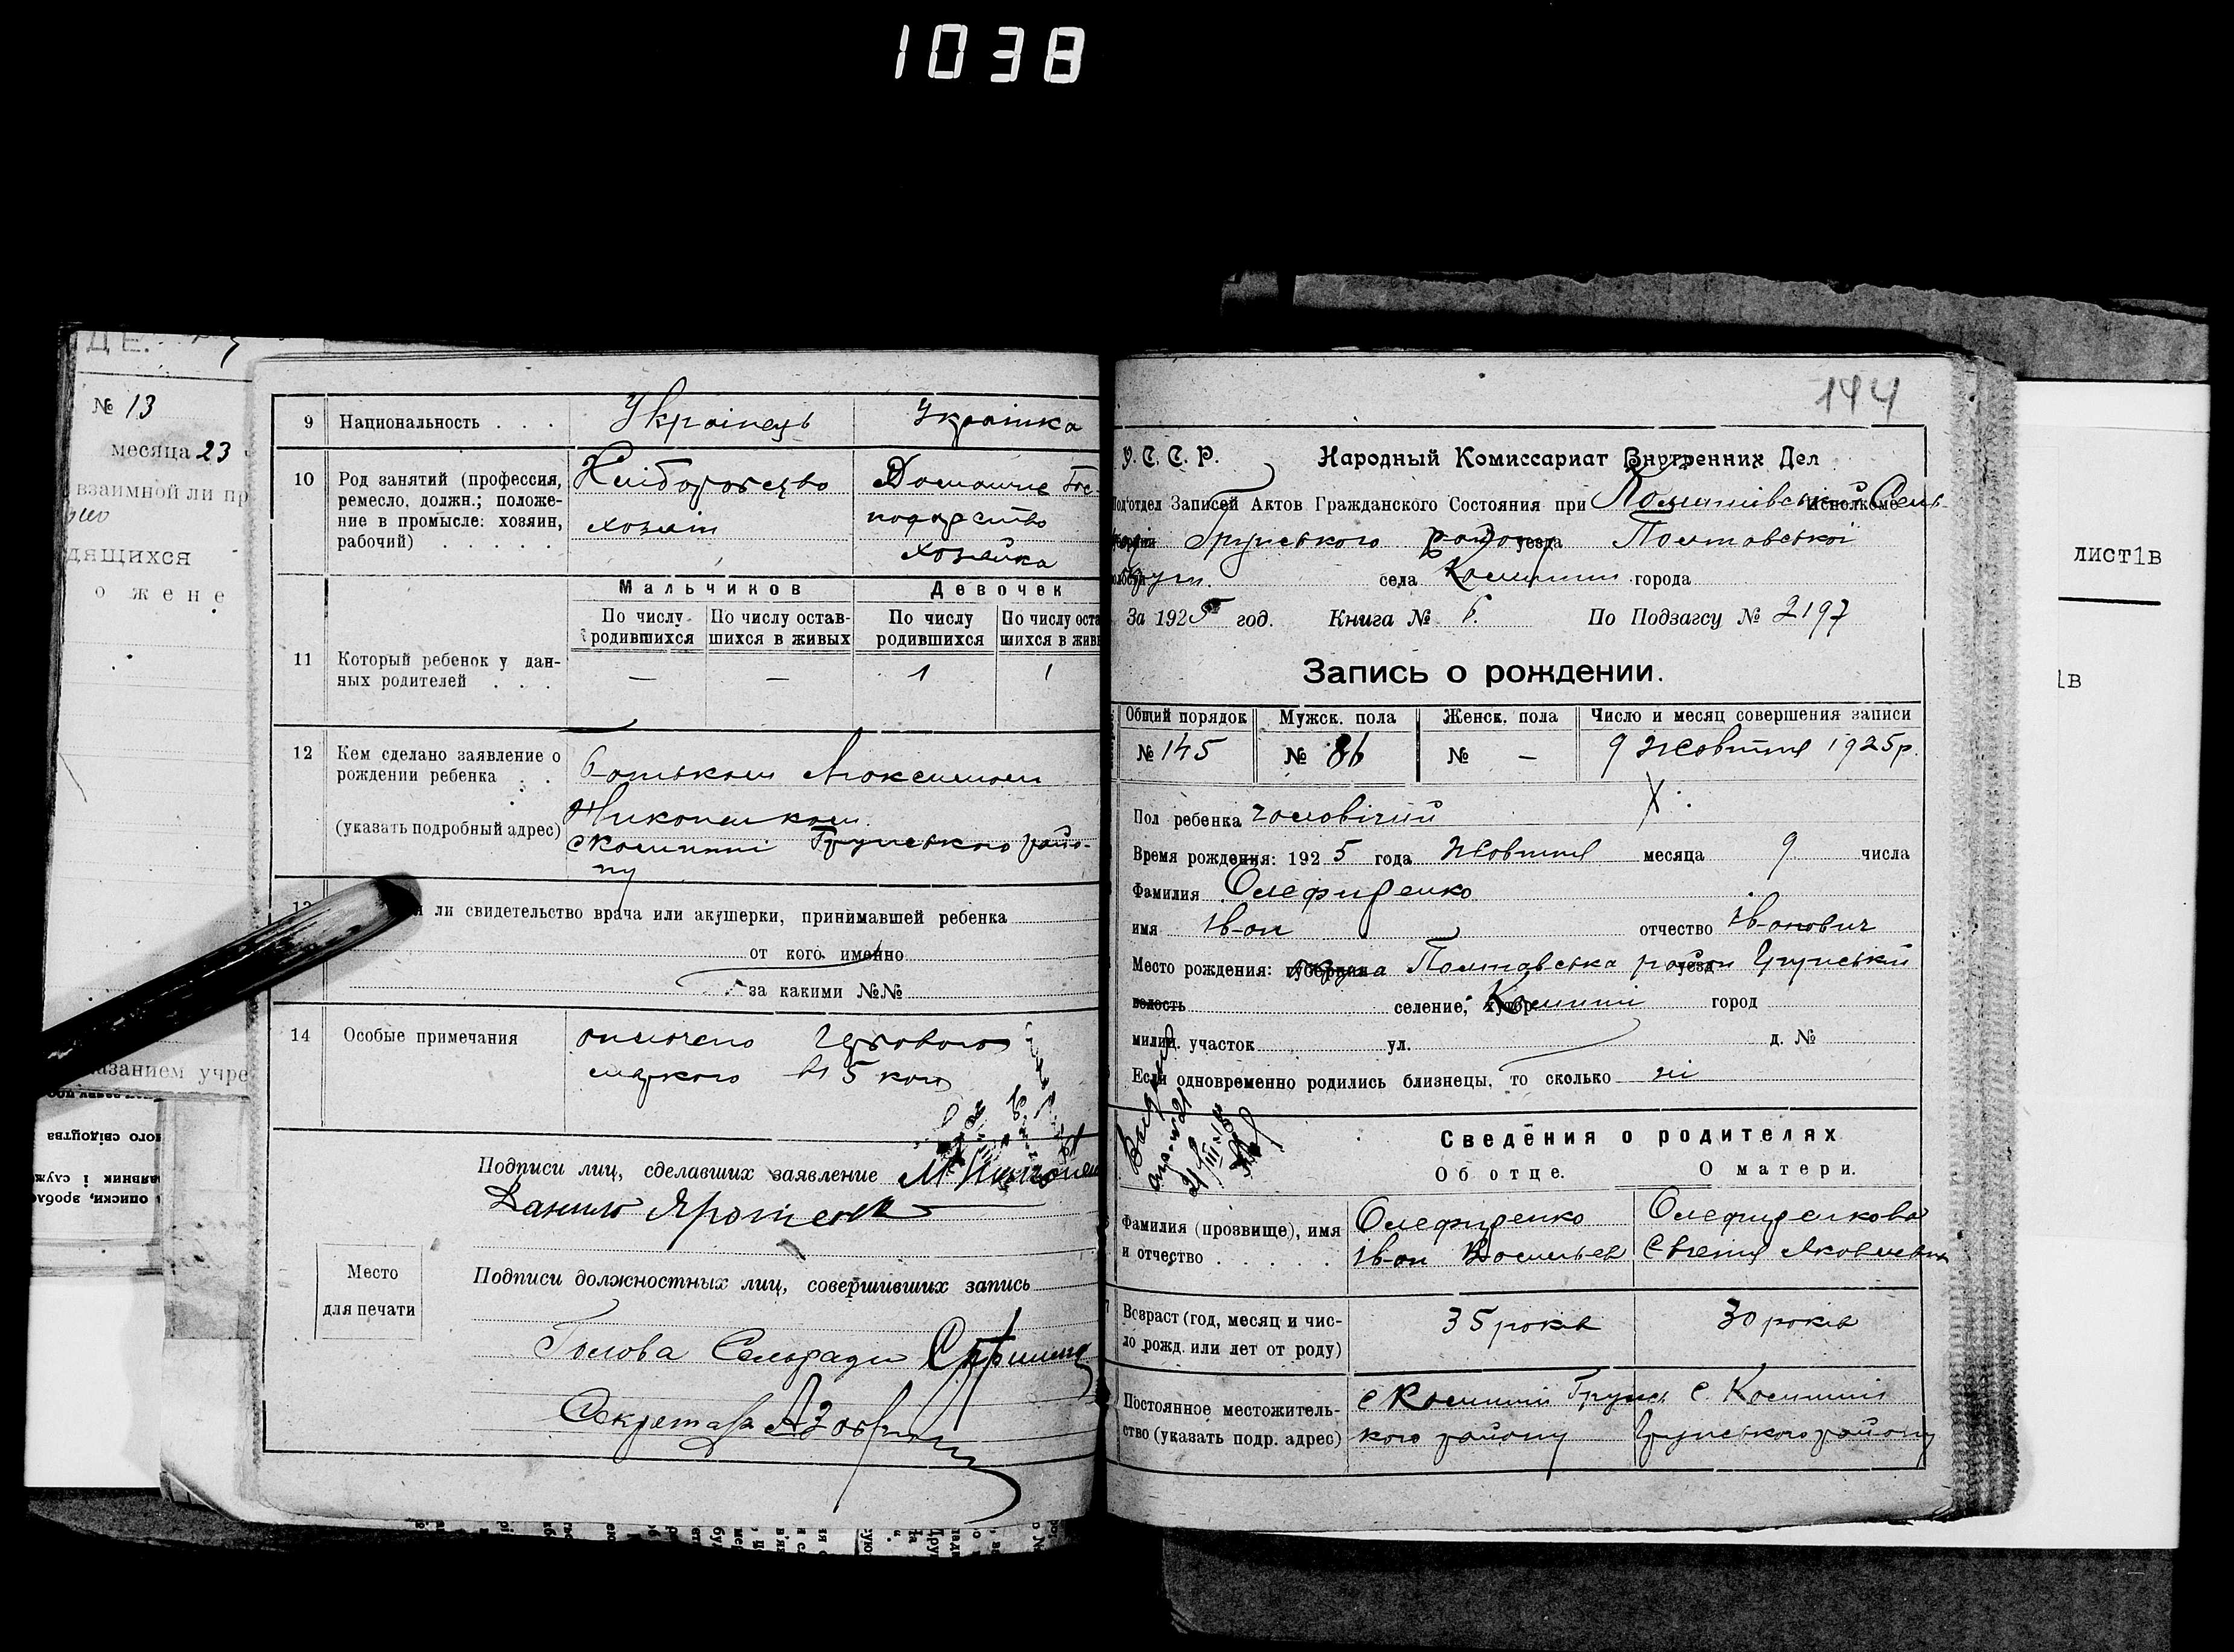 1038
№ 13
месяца 23
взаимной ли пр
дящихся
о жене
казанием учре
9 Национальность . . . Українець Українка
10 Род занятий (профессия, ремесло, должн.; положение в промысле: хозяин, рабочий) . . . . . Хліборобство хозяін Домашне Господарство хозяйка
Мальчиков Девочек
По числу родившихся По числу оставшихся в живых По числу родившихся По числу оста шихся в живы
11 Который ребенок у данных родителей . . . — — 1 1
12 Кем сделано заявление о рождении ребенка . . Батьком Максимом
(указать подробный адрес)
с Комиші Грунського райо-
ну
13 ли свидетельство врача или акушерки, принимавшей ребенка
от кого именно
за какими №№
14 Особые примечания оплочено гербового
маркою 15 коп
Подписи лиц, сделавших заявление
Данило
Место
для печати
Подписи должностных лиц, совершивших запись
Голова Сельради
Секретарь
144
У. С. С. Р. Народный Комиссариат Внутренних Дел
Под'отдел Записей Актов Гражданского Состояния при Исполкоме
Грунського району уезда Полтавської
села Комиші города
За 1925 год. Книга № По Подзагсу № 2197
Запись о рождении.
Общий порядок Мужск. пола Женск. пола Число и месяц совершения записи
№ 145 № 86 № — 9 Жовтня 1925р.
Пол ребенка чоловічий
Время рождения: 1925 года Жовтня месяца 9 числа
Фамилия Олефиренко
имя Іван отчество Іванович
Место рождения: Полтавська район уезд Грунський
волость селение, хутор Комиші город
милиц. участок ул. д. №
Если одновременно родились близнецы, то сколько ні
Сведения о родителях
Об отце. О матери.
Фамилия (прозвище), имя и отчество . . . . . . Олефиренко Іван Васильев Олефиренкова Євгенія Яковлевна
Возраст (год, месяц и число рожд. или лет от роду) 35 років 30 років
Постоянное местожительство (указать подр. адрес) с Комиші Грунського району с. Комиші Грунського району
лист1в
1в